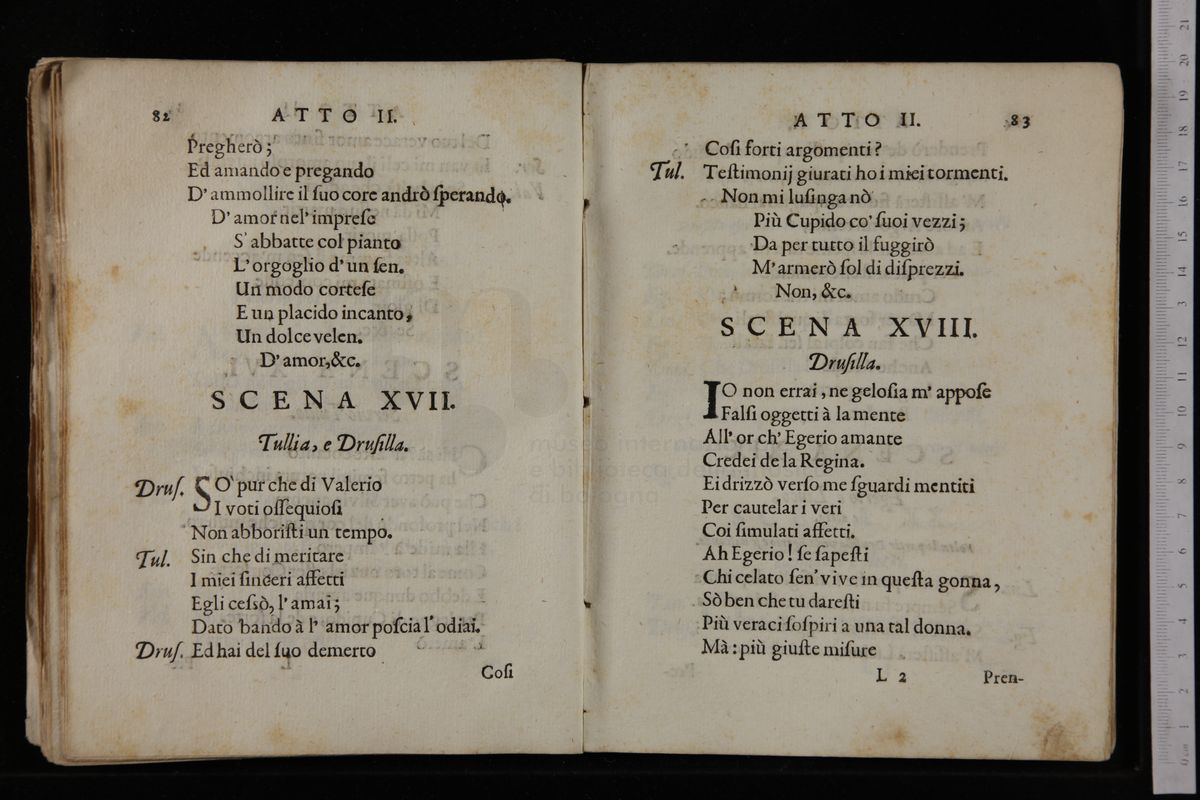 82 ATTO II.
Pregherò;
Ed amando e pregando
D'ammollire il ſuo core andrò ſperando.
D'amor nel' impreſe
S'abbatte col pianto
L'orgoglio d'un ſen.
Un modo corteſe
E un placido incanto,
Un dolce velen.
D'amor,&c.
SCENA XVII.
Tullia, e Druſilla.
Druſ. SO' pur che di Valerio
I voti oſſequioſi
Non abboriſti un tempo.
Tul. Sin che di meritare
I miei ſinceri affetti
Egli ceſsò, l'amai;
Dato bando à l' amor poſcia l'odiai.
Druſ. Ed hai del ſuo demerto
Coſi
ATTO II. 83
Coſi forti argomenti?
Tul. Teſtimonij giurati ho i miei tormenti.
Non mi luſinga nò
Più Cupido co' ſuoi vezzi;
Da per tutto il fuggirò
M'armerò ſol di diſprezzi.
Non, &c.
SCENA XVIII.
Druſilla.
IO non errai, ne geloſia m' appoſe
Falſi oggetti à la mente
All' or ch' Egerio amante
Credei de la Regina.
Ei drizzò verſo me ſguardi mentiti
Per cautelar i veri
Coi ſimulati affetti.
Ah Egerio! ſe ſapeſti
Chi celato ſen' vive in queſta gonna,
Sò ben che tu dareſti
Più veraci ſoſpiri a una tal donna.
Mà: più giuſte miſure
L 2 Pren-
museo interna
e biblioteca de
di bologna